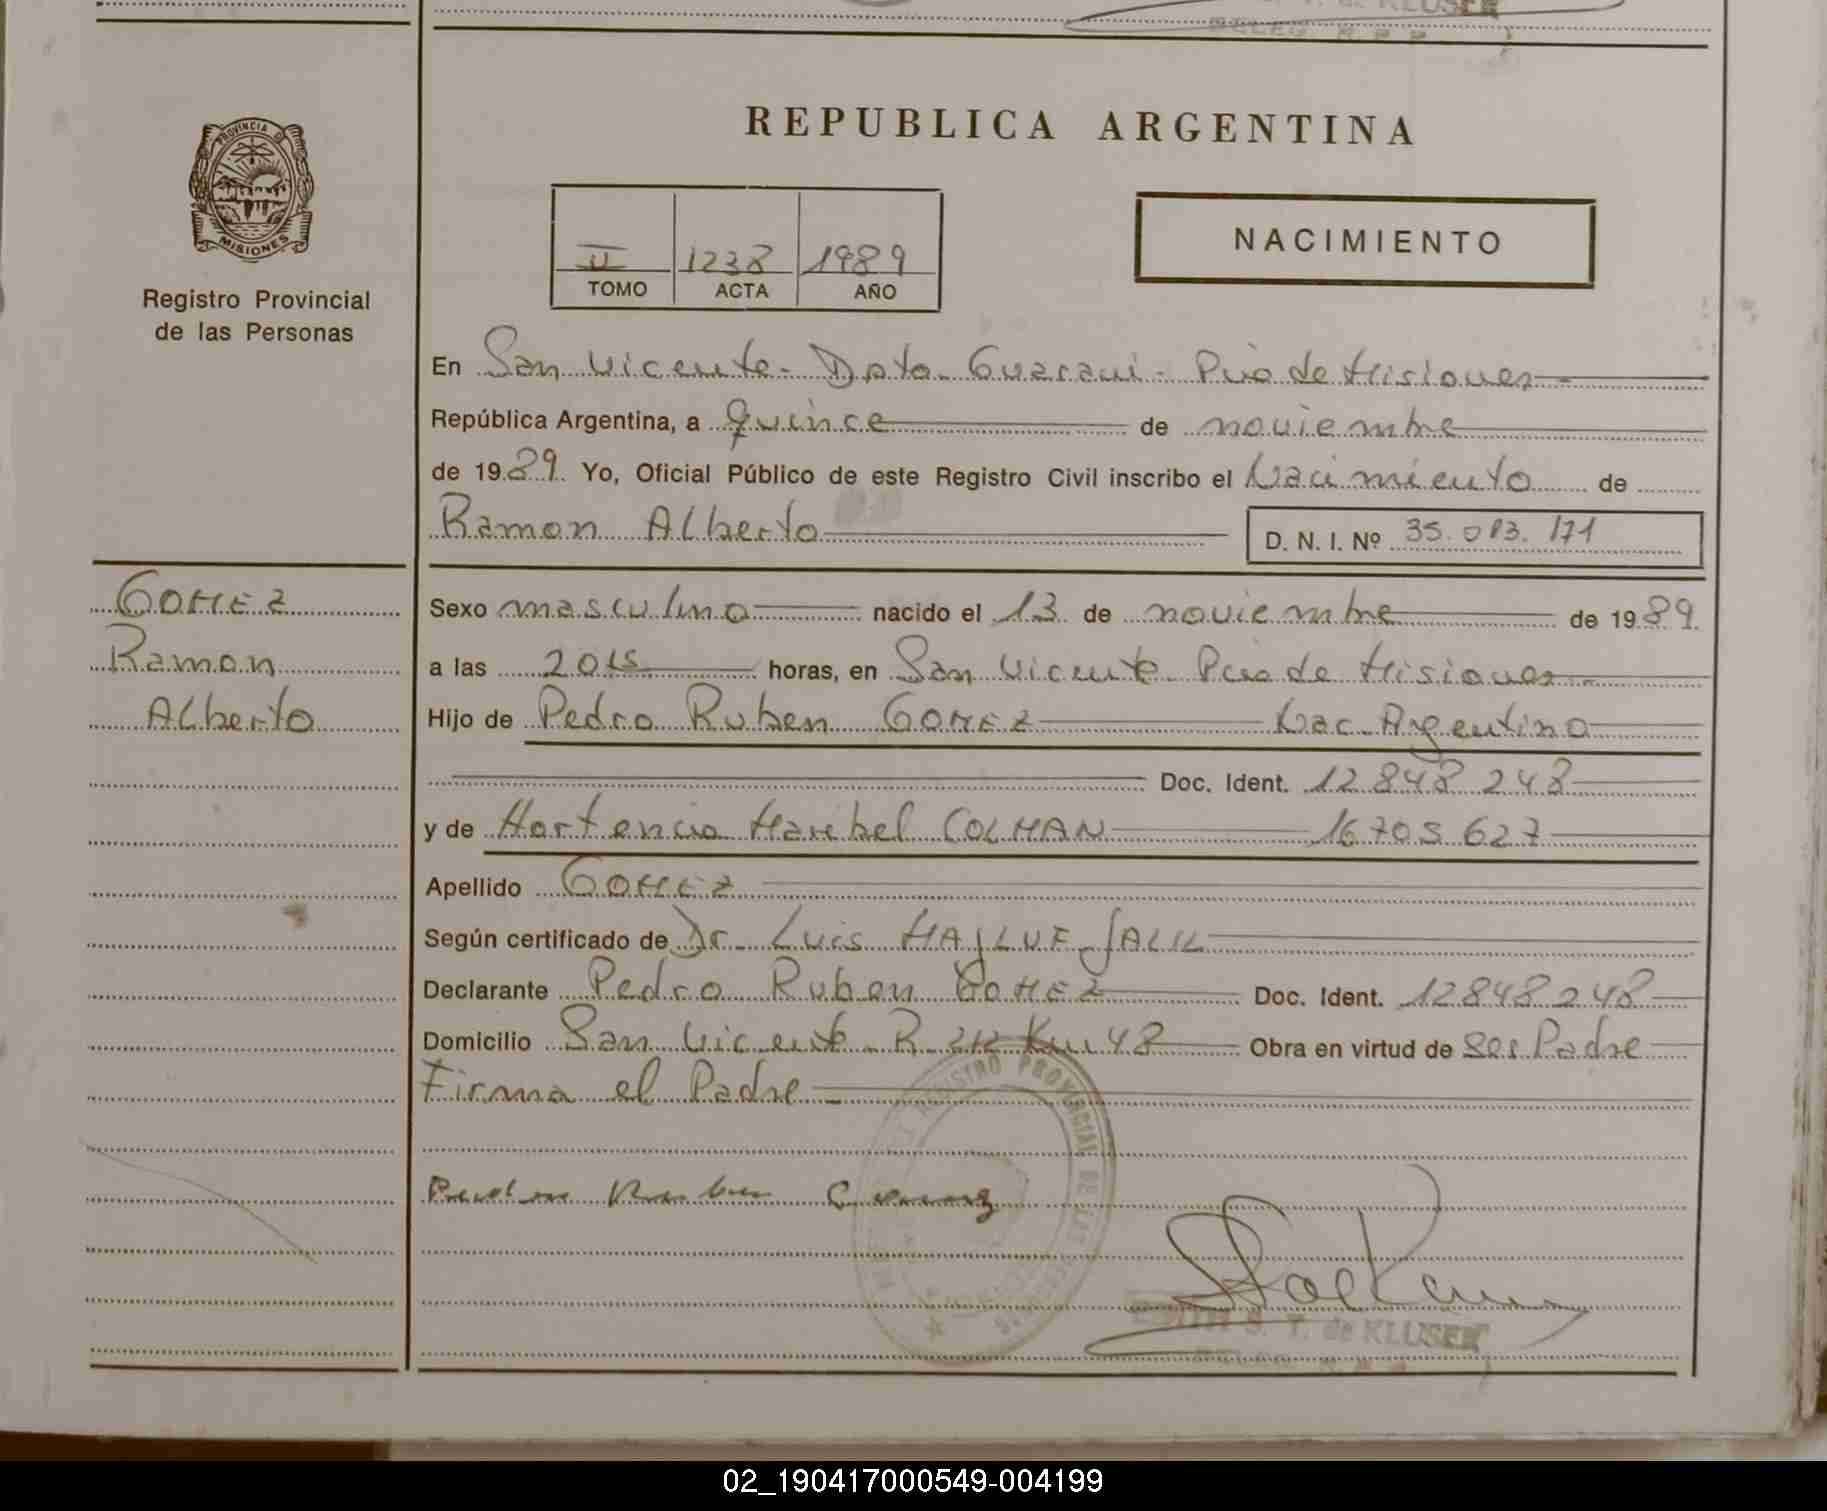 KLUSER
DELEG. R. P. P.
PROVINCIA DE
MISIONES
Registro Provincial
de las Personas
REPUBLICA ARGENTINA
II 1238 1989
TOMO ACTA AÑO
NACIMIENTO
En San Vicente - Dpto. Guarani - Pcia de Misiones
República Argentina, a quince de noviembre
de 1989. Yo, Oficial Público de este Registro Civil inscribo el Nacimiento de
Ramon Alberto D. N. I. Nº 35.013.171
GOMEZ
Ramon
Alberto
Sexo masculino nacido el 13 de noviembre de 1989
a las 20 15 horas, en San Vicente Pcia de Misiones
Hijo de Pedro Ruben GOMEZ Nac. Argentino
Doc. Ident. 12848248
y de Hortencia Maribel COLMAN 16705627
Apellido GOMEZ
Según certificado de Dr. Luis HAJLUF JALIL
Declarante Pedro Ruben GOMEZ Doc. Ident. 12848248
Domicilio San Vicente - R. 212 Km 48 Obra en virtud de ser Padre
Firma el Padre
REGISTRO PROVINCIAL DE LAS
Pedro Ruben Gomez
EDITH S. T. de KLUSER
DELEG. R. P. P.
02_190417000549-004199